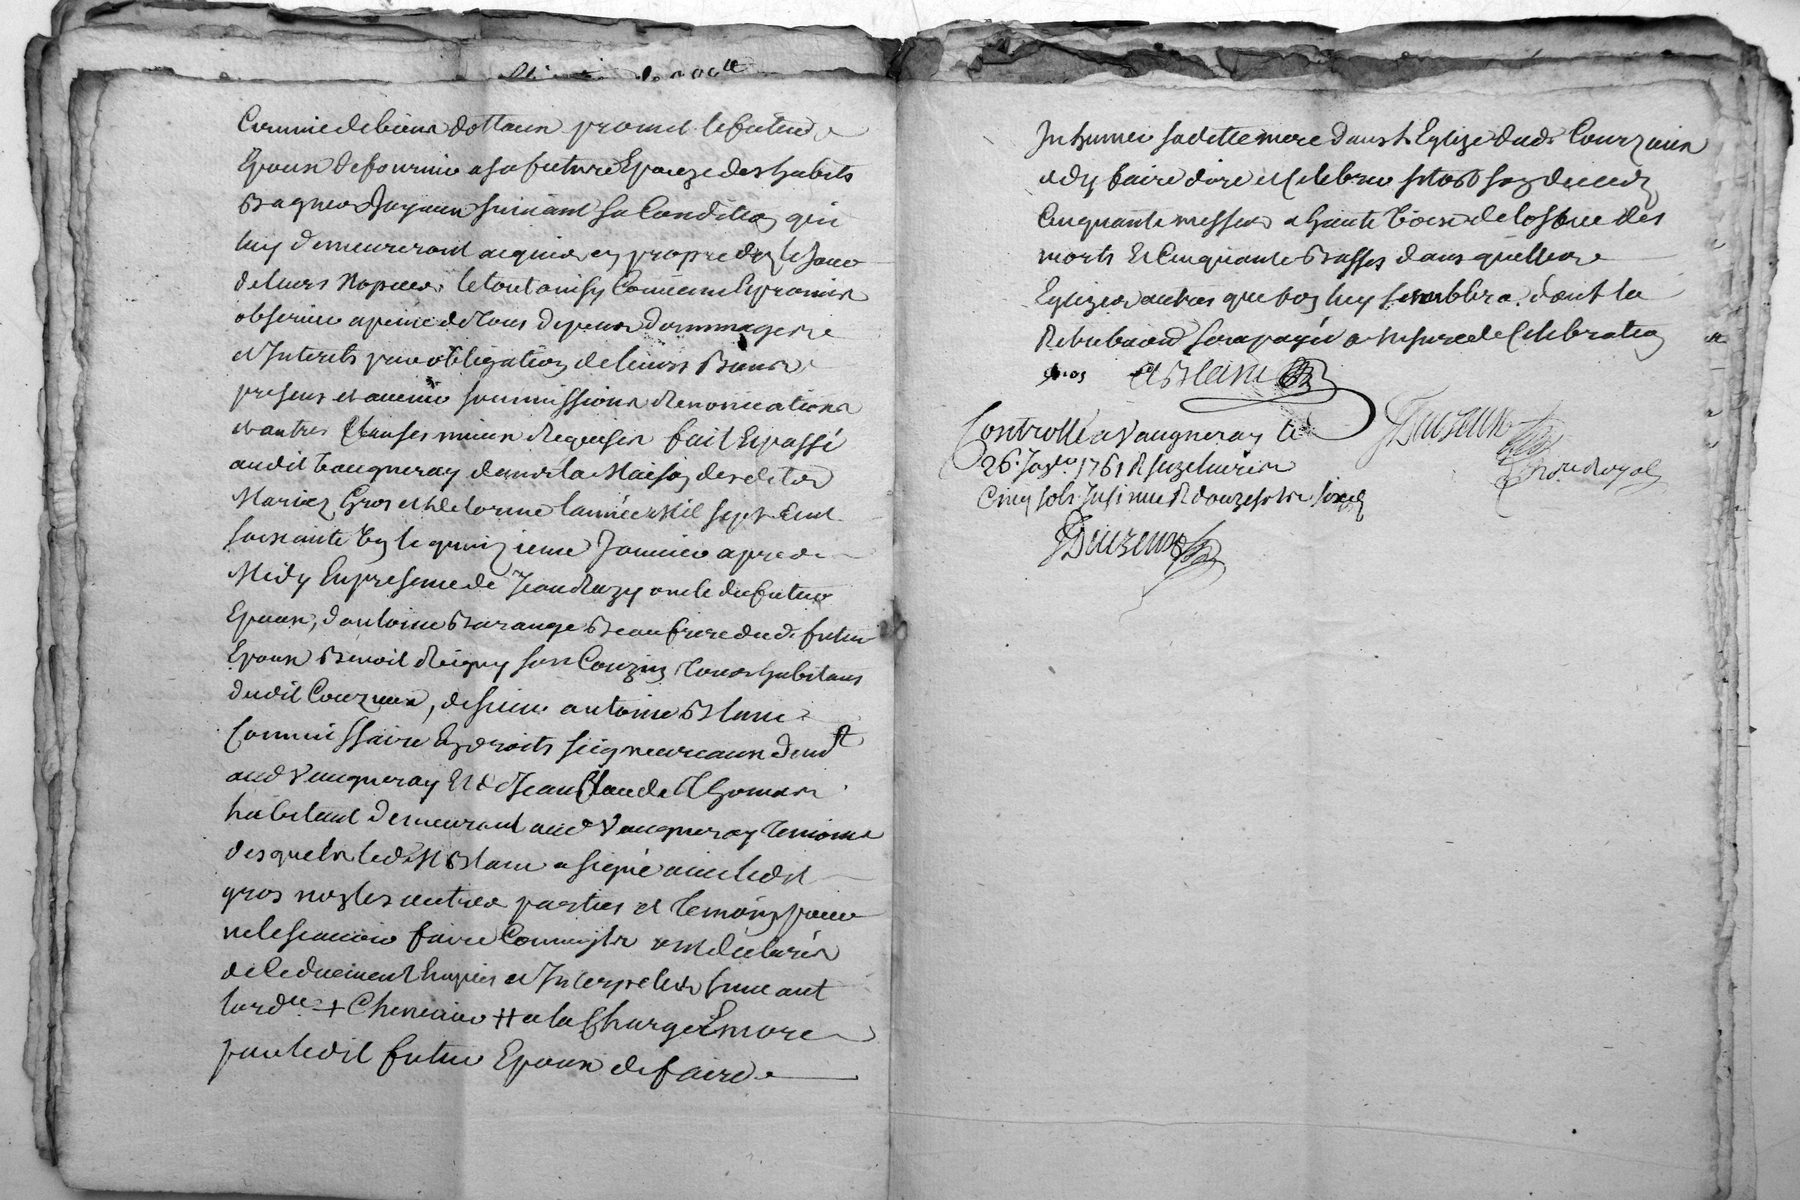 comme de biens dottaux promet le futur
Epoux de fournir a sa future Epouze des habits
Bagues Joyaux suivant sa Condition qui
luy demeureront acquis en propre dez le jour
de leurs Nopces, le tout ainsy Convenu Et promis
observer a peine de tous depens dommages
et Interets par obligation de leurs Biens
presens et avenir soumissions Renonciations
et autres Clauses mieux Requises fait Et passé
audit Vaugneray dans la Maison desdites
Mariez Gros et Delorme l'année Mil sept Cent
soixante Un le quinzieme Janvier apres
Midy En presence de Jean Razy oncle du futur
Epoux, d'antoine Barange Beaufrere dud. futur
Epoux Benoit Reigny son Couzin tous habitans
dudit Courzieux, de sieur antoine Blanc
Commissaire En droits seigneuriaux demt
aud Vaugneray Et de Jean Claude Thomas
habitant demeurant aud Vaugneray temoins
desquels led. sr Blanc a signé avec ledit
gros non les autres parties et temoins pour
ne le scavoir faire Comme ils ont declarés
de ce duement Enquis et Interpelés suivant
lordce + Cheneviere ++ a la Charge Encore
par ledit futur Epoux de faire
Inhumer saditte mere dans l'Eglize dud. Courzieux
et dy faire dire et Celebrer sitost son deceds
Cinquante messes a haute Voix de loffice des
morts Et Cinquante Basses dans quelleque
Eglizes autres que bon luy semblera, dont la
Retribution sera payée a mesure de Celebration
gros A Blanc
Controllé a Vaugneray le
26. Janer 1761 R seize livres
Cinq sols Insinué R douze livres
Duzeux
Duzeux
Nore Royal